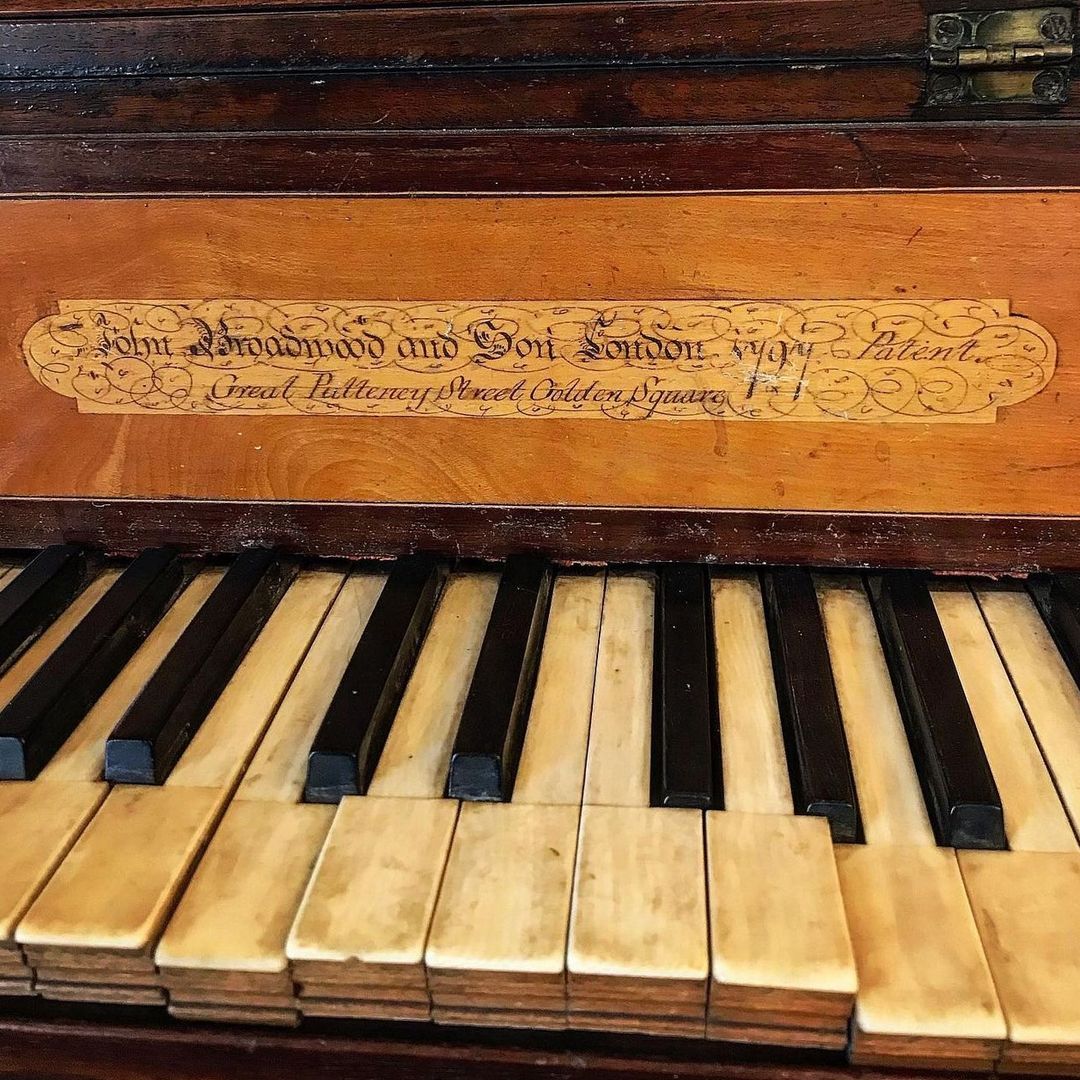 John Broadwood and Son London 1797 Patent
Great Pulteney Street Golden Square